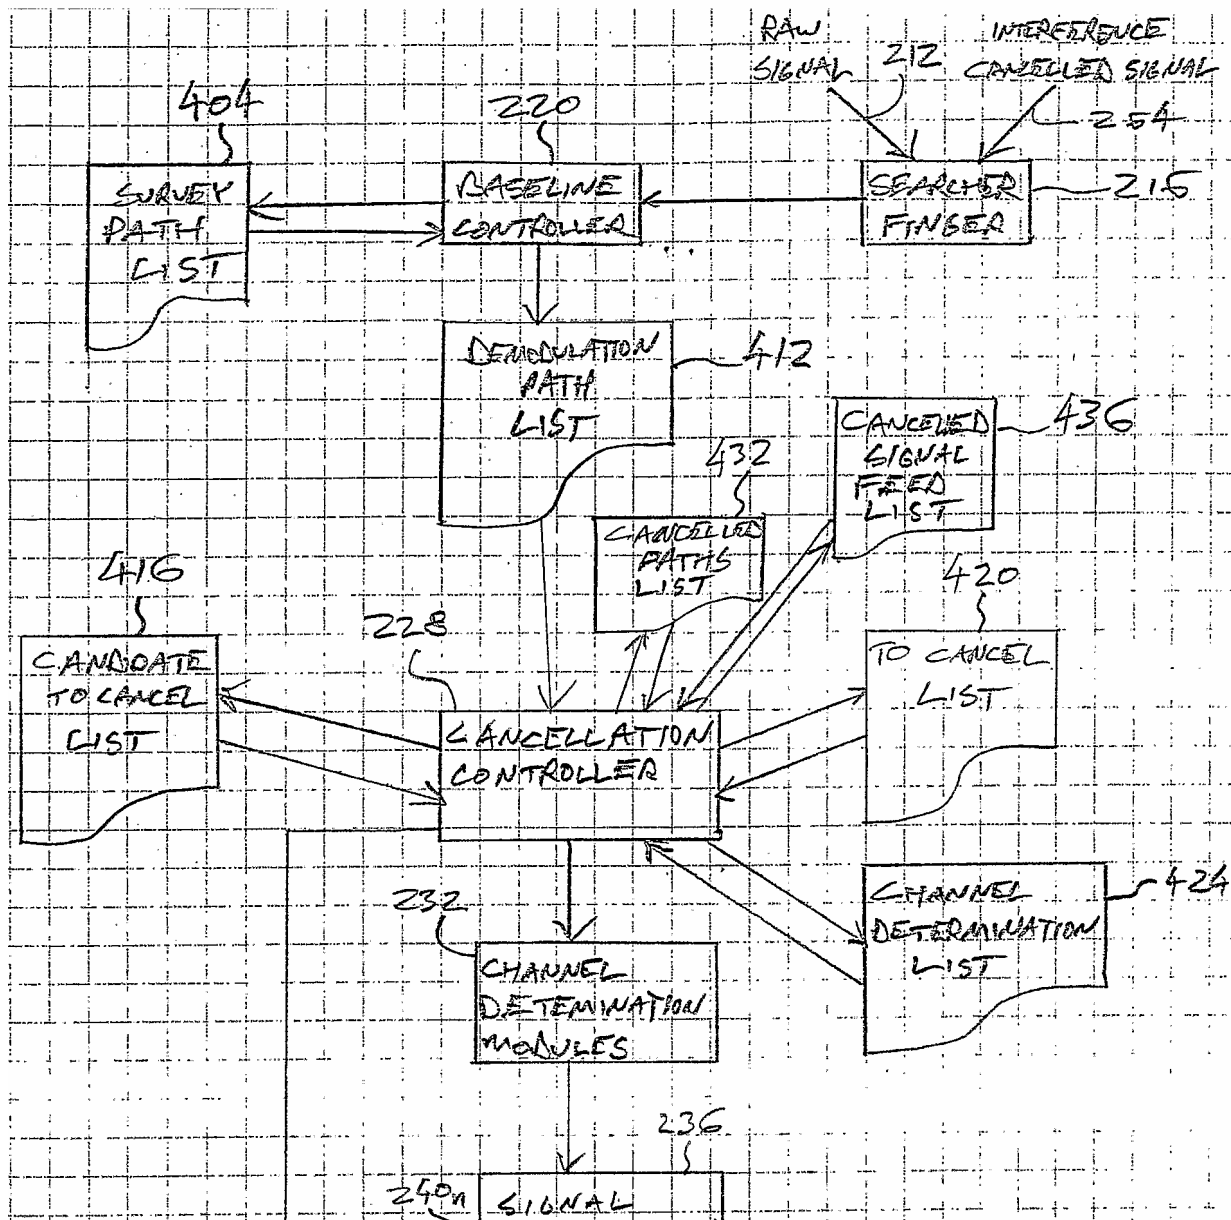 RAW
SIGNAL
212
INTERFERENCE
CANCELLED SIGNAL
254
404
220
SURVEY
PATH
LIST
BASELINE
CONTROLLER
SEARCHER
FINGER
216
DEMODULATION
PATH
LIST
412
CANCELLED
SIGNAL
FEED
LIST
436
432
CANCELLED
PATHS
LIST
416
420
228
CANDIDATE
TO CANCEL
LIST
TO CANCEL
LIST
CANCELLATION
CONTROLLER
232
CHANNEL
DETERMINATION
LIST
424
CHANNEL
DETEMINATION
MODULES
236
240n
SIGNAL